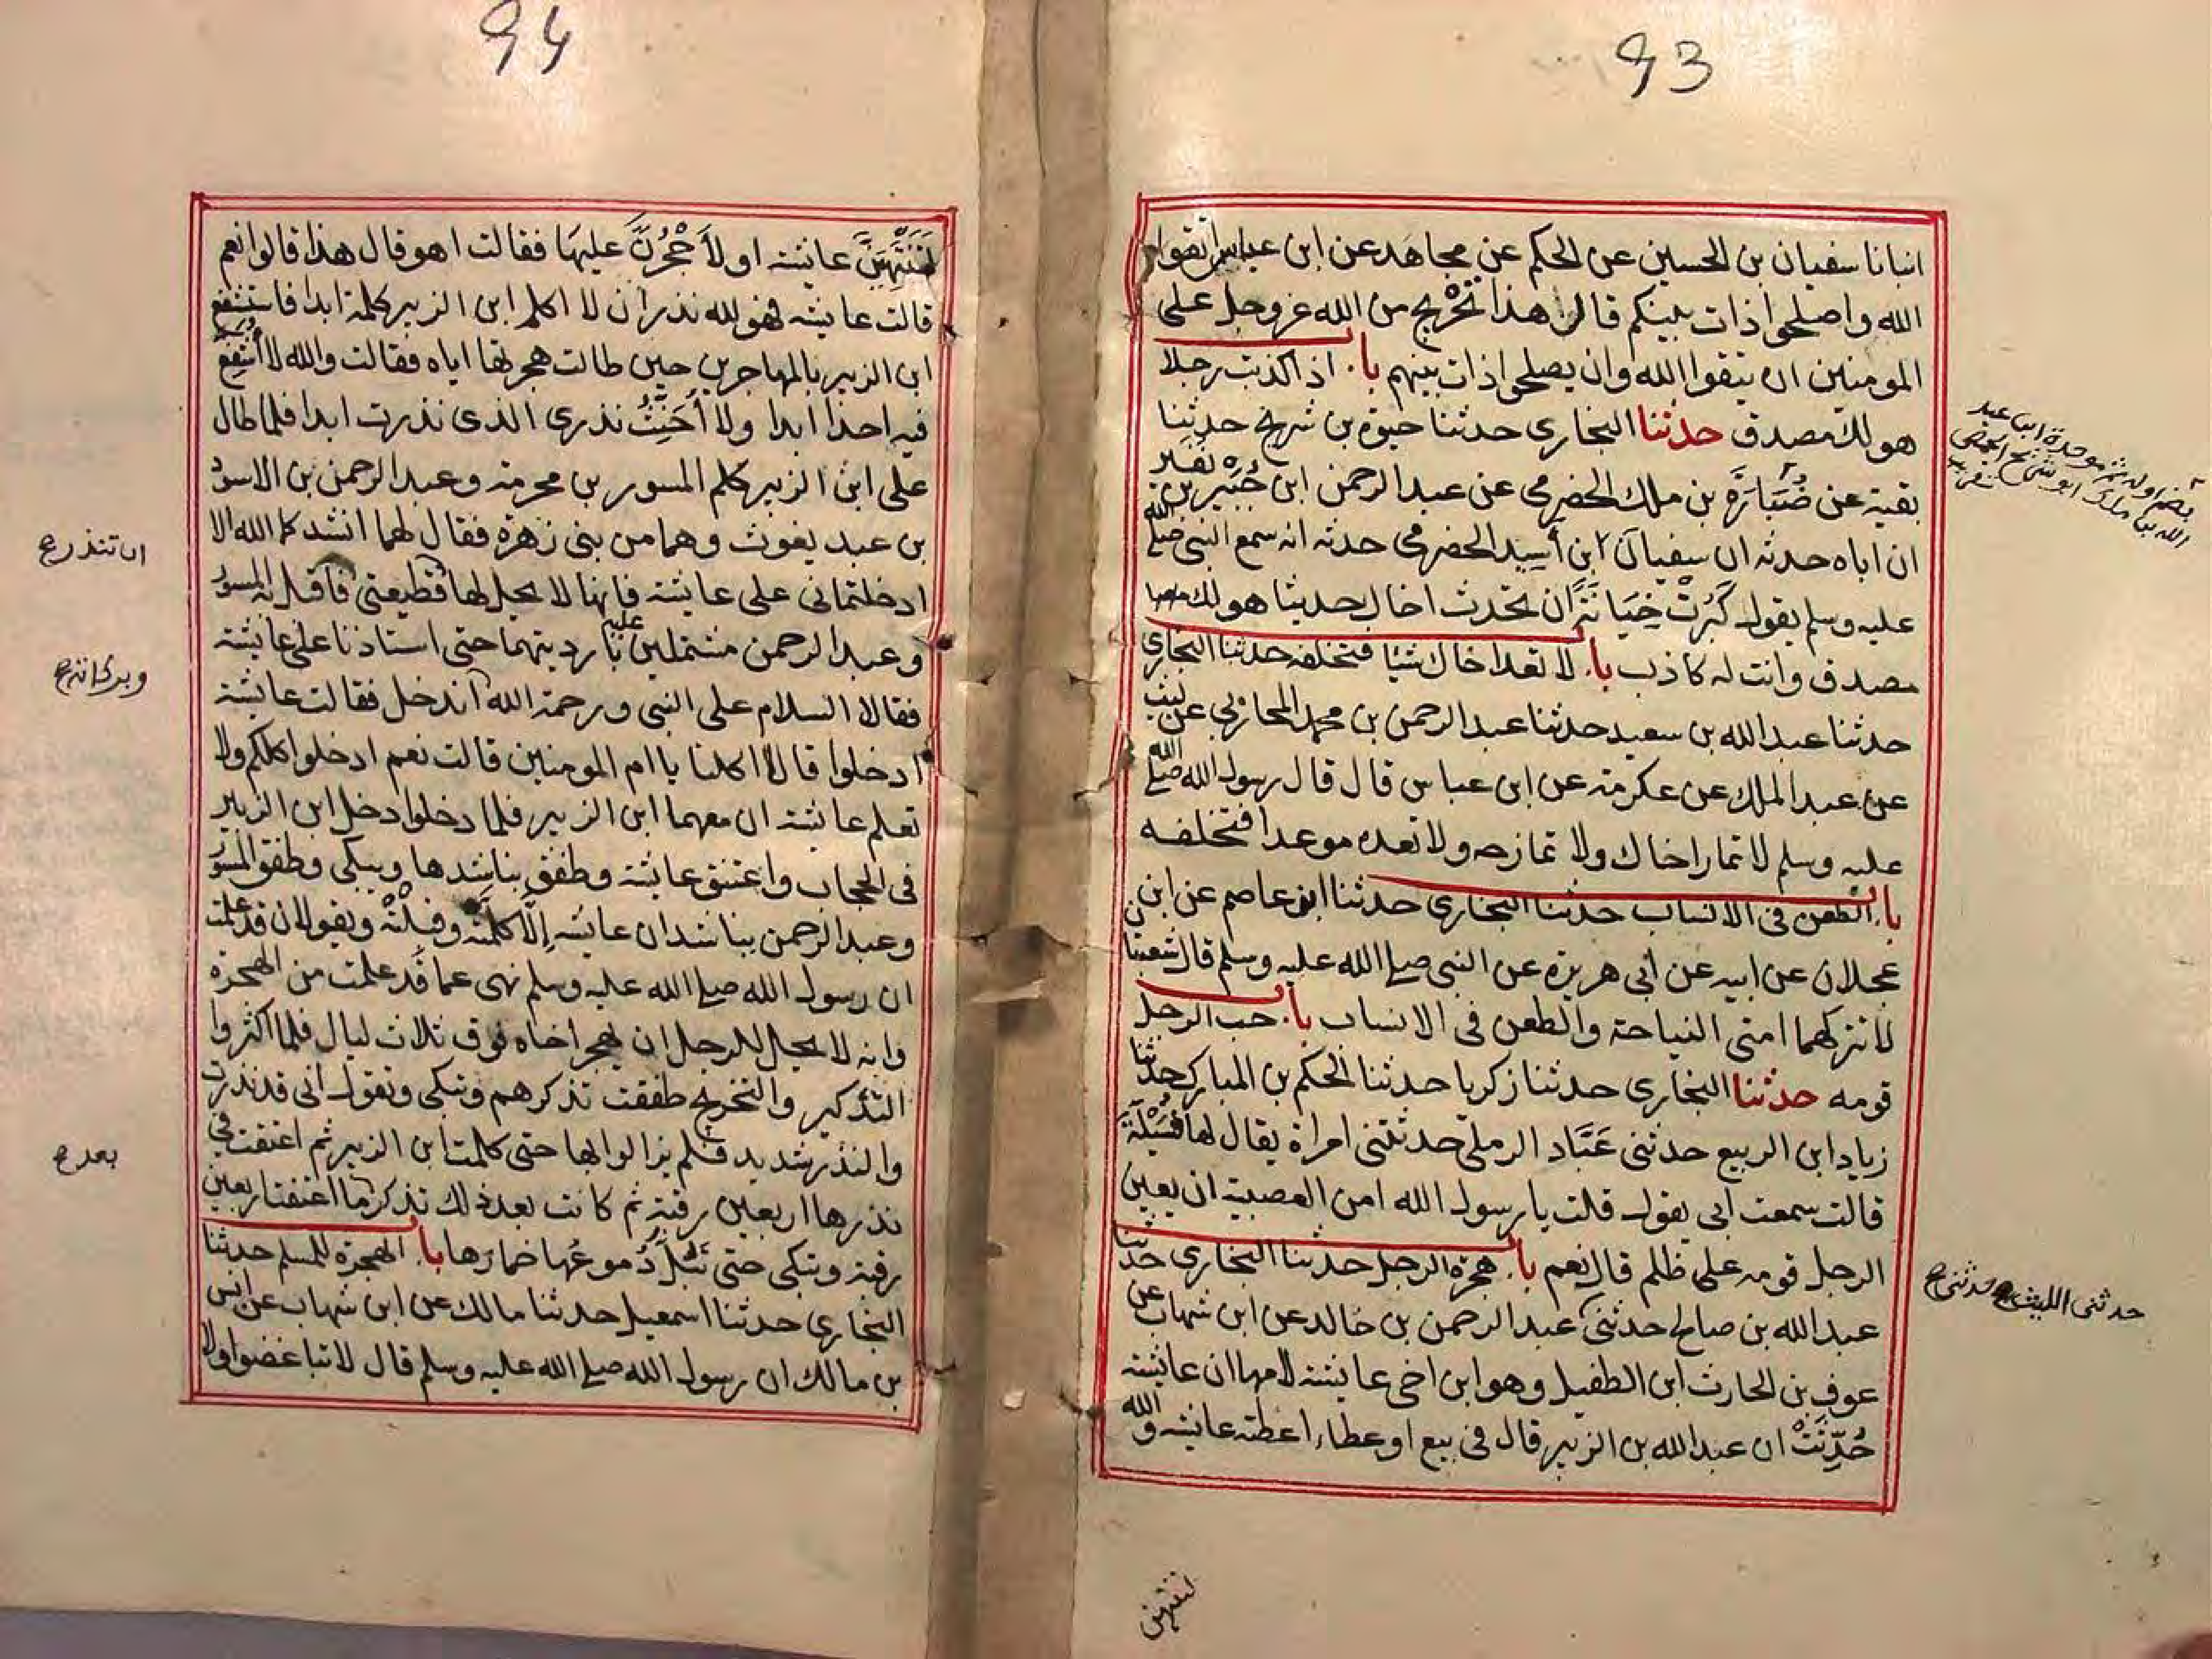 93
انبانا سفيان بن الحسين عن الحكم عن مجاهد عن ابن عباس اتقوا
الله واصلحوا ذات بينكم قال هذا تحْريج من الله عز وجل على
المومنين ان يتقوا الله وان يصلحوا ذات بينهم باب اذا كذبت رجلا
هو لك مصدق حدثنا البخارى حدثنا حيوة بن شريح حدثنا
بقية عن ضُبَارَةَ بن ملك الحضرمى عن عبد الرحمن ابن جُبَير بن نفير
ان اباه حدثه ان سفيان ابن أَسِيد الحضرمى حدثه انه سمع النبى صلى الله
عليه وسلم يقول كَبُرَتْ خِيَانَةً ان تحدث اخاك حديثا هو لك
مصدق وانت له كاذب باب لا تعد اخاك شيئا فتخلفه حدثنا البخارى
حدثنا عبد الله بن سعيد حدثنا عبد الرحمن بن محمد المحاربى عن ليث
عن عبد الملك عن عكرمة عن ابن عباس قال قال رسول الله صلى الله
عليه وسلم لا تمار اخاك ولا تمازحه ولا تعده موعدا فتخلفه
باب الطعن فى الانساب حدثنا البخارى حدثنا ابو عاصم عن ابن
عجلان عن ابيه عن ابى هريرة عن النبى صلى الله عليه وسلم قال شعبتان
لا تتركهما امتى النياحة والطعن فى الانساب باب حب الرجل
قومه حدثنا البخارى حدثنا زكريا حدثنا الحكم بن المبارك حدثنا
زياد ابن الربيع حدثنى عَبَّاد الرملى حدثتنى امراة يقال لها فُسَيْلَةُ
قالت سمعت ابى يقول قلت يا رسول الله امن العصبية ان يعين
الرجل قومه على ظلم قال نعم باب هجرة الرجل حدثنا البخارى حدثنا
عبد الله بن صالح حدثنى عبد الرحمن بن خالد عن ابن شهاب عن
عوف بن الحارث ابن الطفيل وهو ابن اخى عايشة لامها ان عايشة
حُدِّثَتْ ان عبد الله بن الزبير قال فى بيع او عطاء اعطته عايشه والله
لتنتهين
بضم اوله ثم موحدة ابن عبد
الله بن مالك ابو شريح الحمصى
حدثنى الليث ح حدثنى ح
94
لَتَنْتَهِيَنَّ عايشة او لأَحْجُرَنَّ عليهَا فقالت اهو قال هذا قالوا نعم
قالت عايشه فهو لله نذر ان لا اكلم ابن الزبير كلمة ابدا فاستشفع
ابن الزبير بالمهاجرين حين طالت هجرتها اياه فقالت والله لا أشفع
فيه احدا ابدا ولا أُحَنِّثُ نذرى الذى نذرت ابدا فلما طال
على ابن الزبير كلم المسور بن مخرمة وعبد الرحمن بن الاسود
بن عبد يغوث وهما من بنى زهرة فقال لهما انشدكما الله الا
ادخلتمانى على عايشة فانها لا يحل لها قطيعتى فاقبل به المسور
وعبد الرحمن مشتملين عليه بارديتهما حتى استاذنا على عايشة
فقالا السلام على النبى ورحمة الله اندخل فقالت عايشة
ادخلوا قالا اكلنا يا ام المومنين قالت نعم ادخلوا كلكم ولا
تعلم عايشة ان معهما ابن الزبير فلما دخلوا دخل ابن الزبير
فى الحجاب واعتنق عايشة وطفق يناشدها ويبكى وطفق المسور
وعبد الرحمن يناشدان عايشه إلّا كلمته وقبلته ويقولان قد علمت
ان رسول الله صلى الله عليه وسلم نهى عما قد علمت من الهجرة
وانه لا يحل للرجل ان يهجر اخاه فوق ثلاث ليال فلما اكثروا
التذكير والتحريج طفقت تذكرهم وتبكى وتقول انى قد نذرت
والنذر شديد فلم يزالوا بها حتى كلمت ابن الزبير ثم اعتقت فى
نذرها اربعين رقبة ثم كانت بعد ذلك تذكر ما اعتقت اربعين
رقبة وتبكى حتى تَبُلَّ دُموعُها خمارَها باب الهجرة للمسلم حدثنا
البخارى حدثنا اسمعيل حدثنا مالك عن ابن شهاب عن انس
بن مالك ان رسول الله صلى الله عليه وسلم قال لا تباغضوا ولا
ان تنذر ح
وبركاته ح
بعد ح